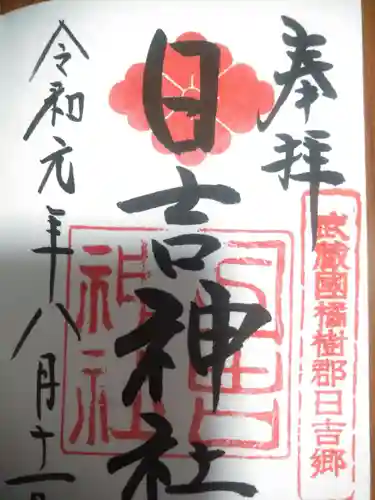 奉拝
武蔵國橘樹郡日吉郷
日吉神社
日吉神社
令和元年八月十一日